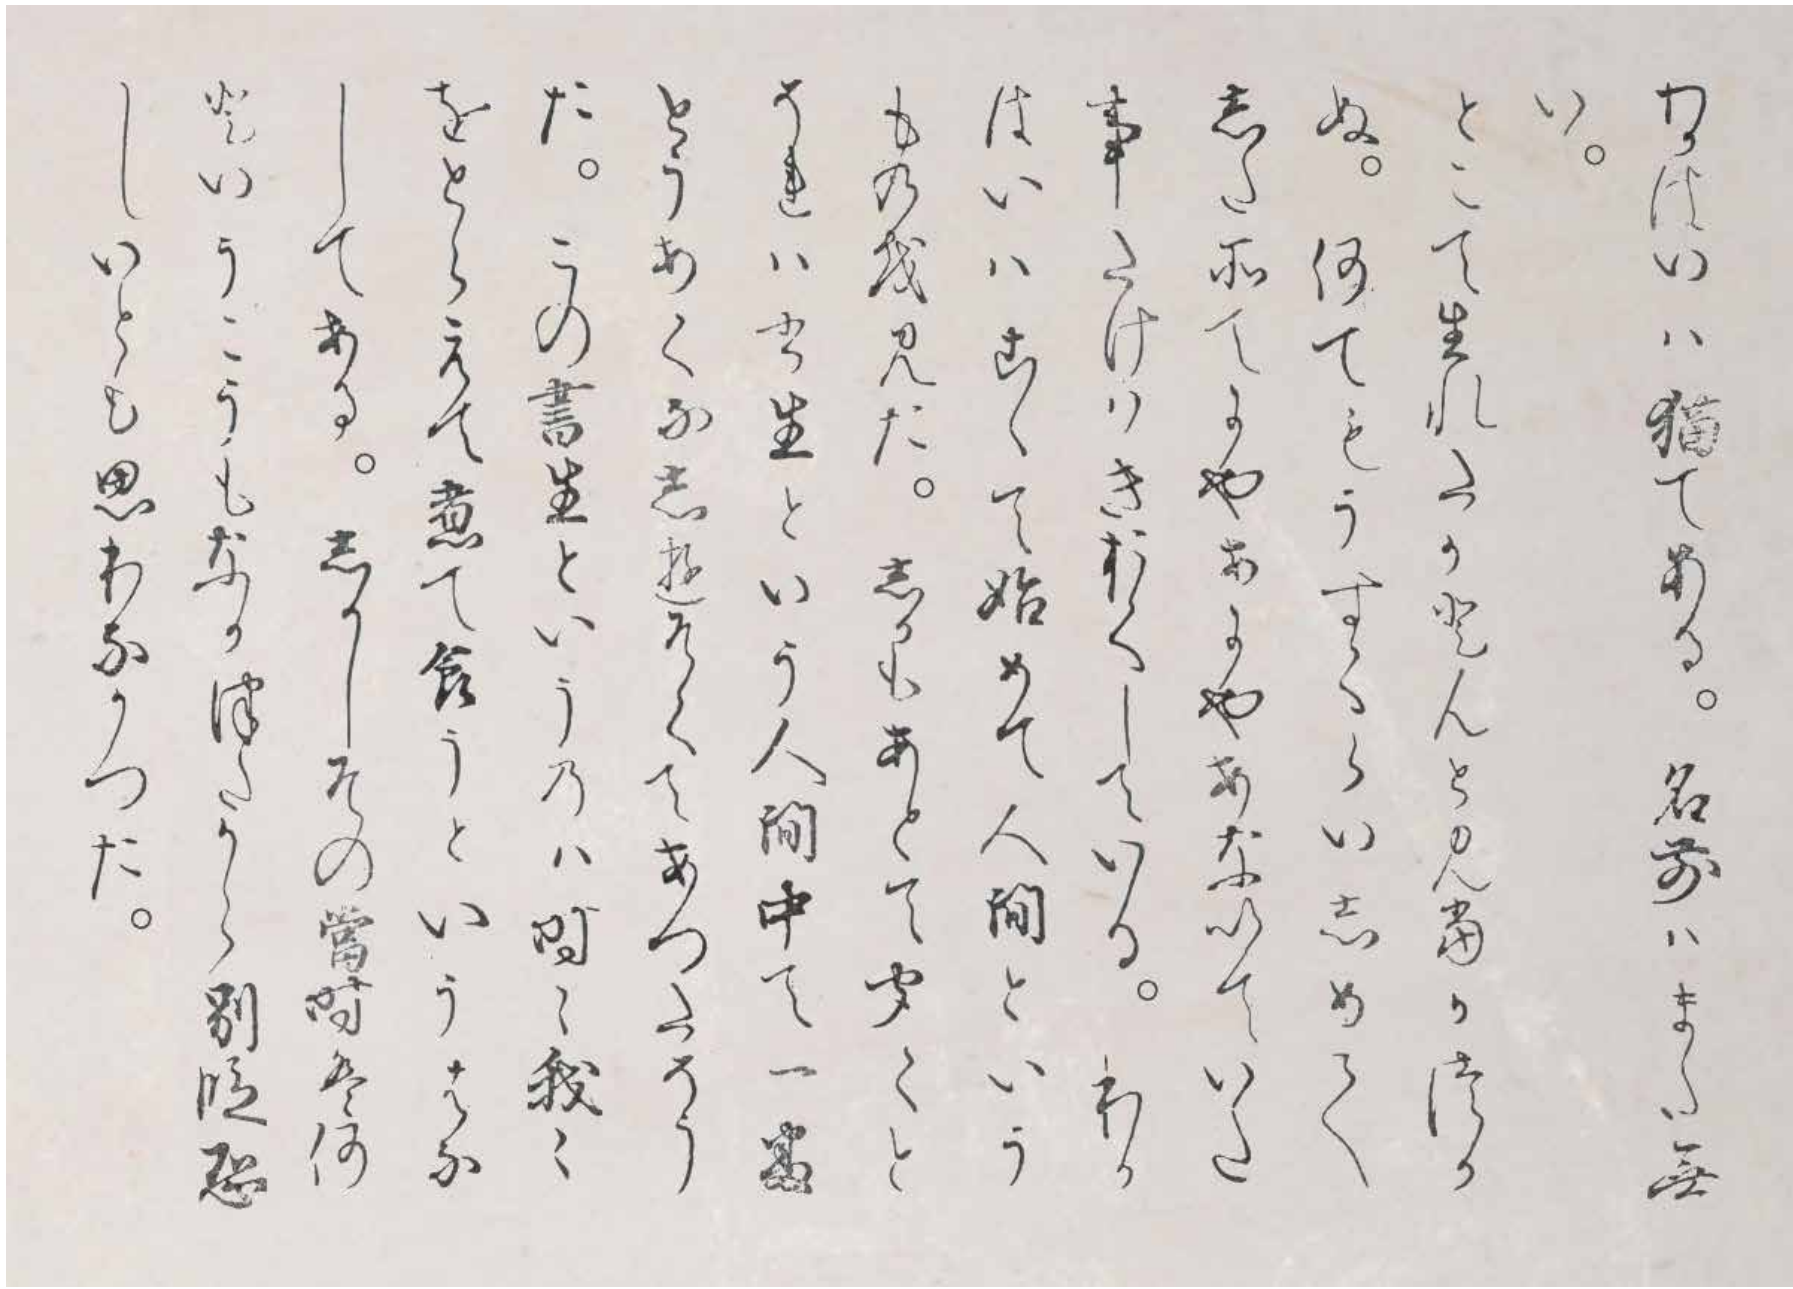 わかはいは猫てある。名前はまた無
い。
とこて生れたかとんと見當かつか
ぬ。何てもうすくらいしめしめ
した所てにやあにやあないていた
事たけはきおくしている。わか
はいはこゝて始めて人間という
ものを見た。しかもあとて聞くと
それは書生という人間中て一番
とうあくなしゆそくてあつたそう
だ。この書生というのは時々我々
をとらえて煮て食うというはな
してある。しかしその當時は何
というこうもなかつたから別段恐
しいとも思わなかつた。